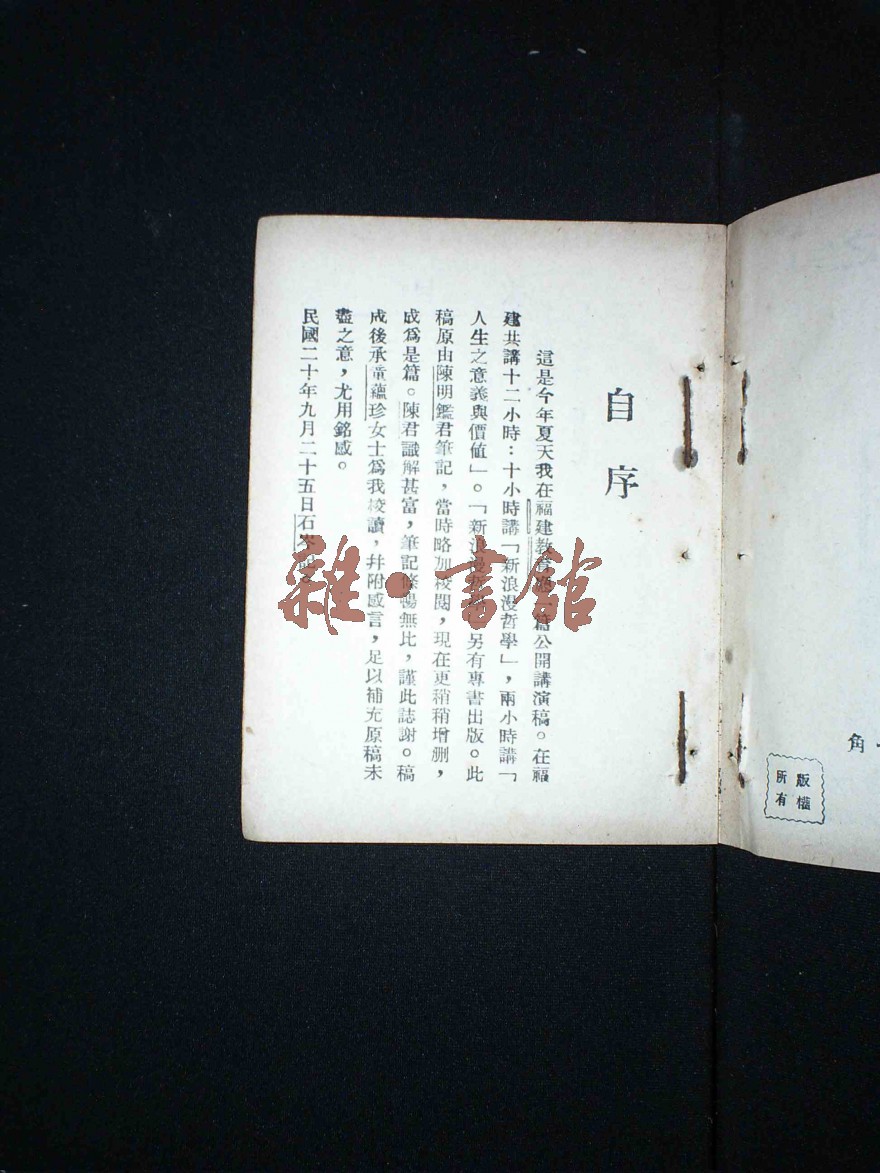 自序
這是今年夏天我在福建教育廳一篇公開講演稿。在福
建共講十二小時：十小時講「新浪漫哲學」，兩小時講「
人生之意義與價值」。「新浪漫哲學」另有專書出版。此
稿原由陳明鑑君筆記，當時略加校閱，現在更稍稍增删，
成爲是篇。陳君識解甚富，筆記條暢無比，謹此誌謝。稿
成後承童蘊珍女士爲我校讀，幷附感言，足以補充原稿未
盡之意，尤用銘感。
民國二十年九月二十五日石岑記。
角
版權
所有
雜·書館